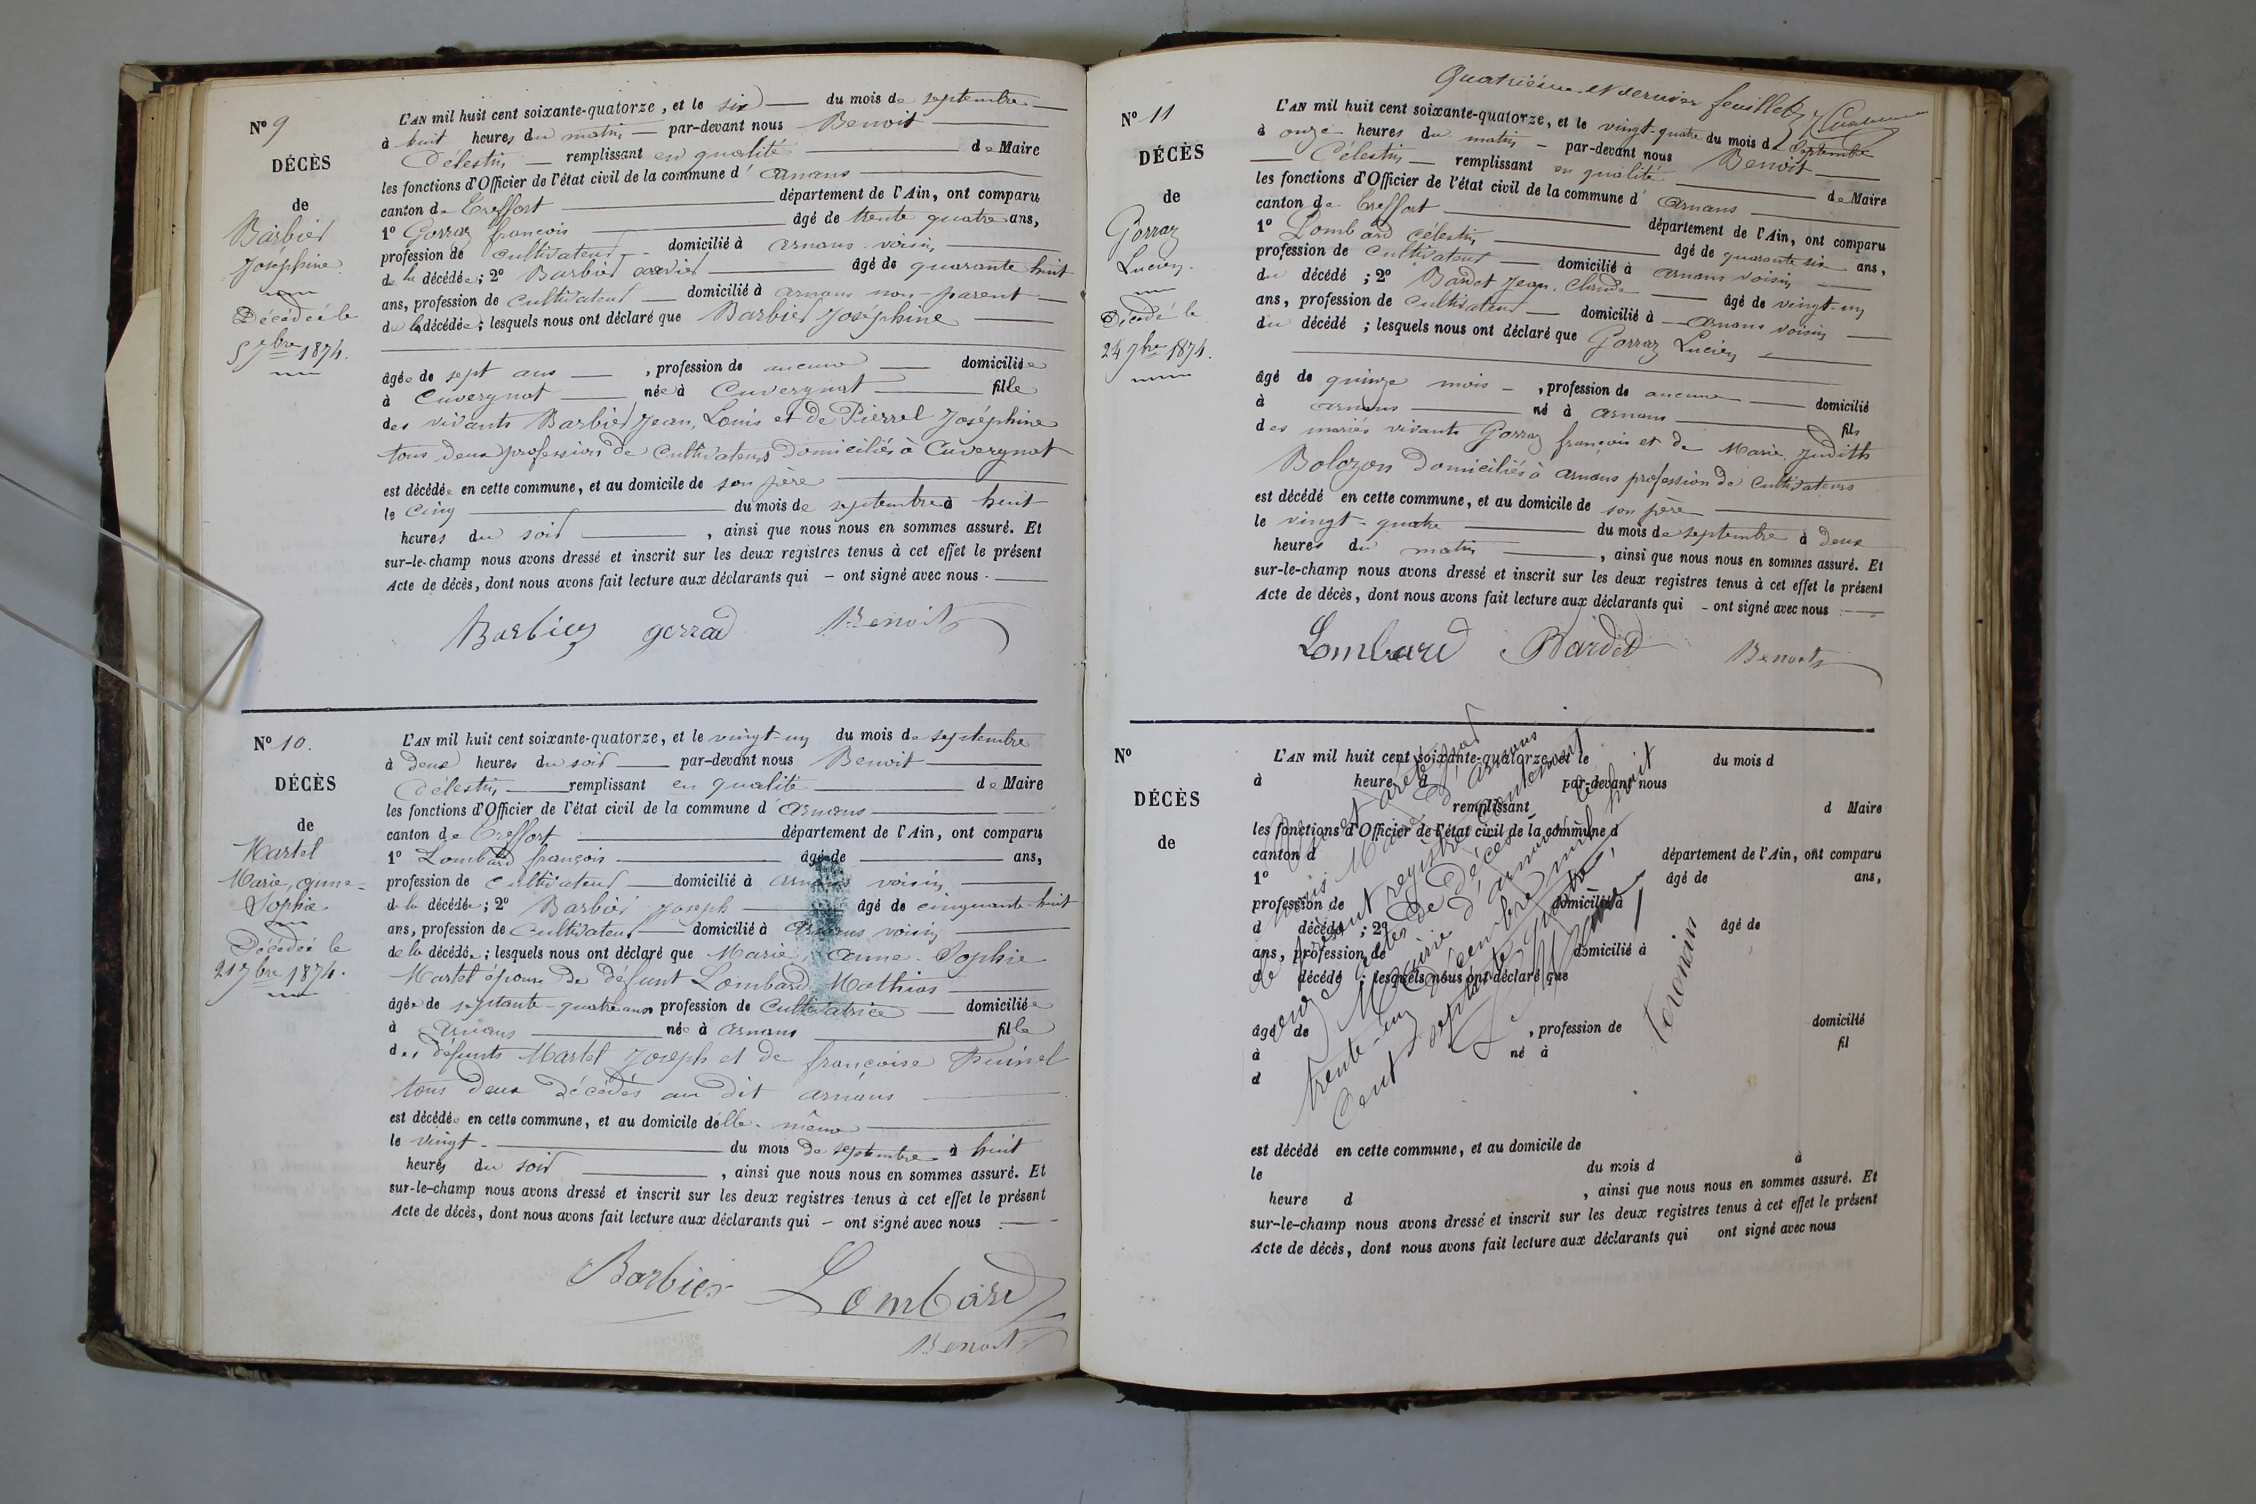 N° 9
DÉCÈS
de
Barbier
Joséphine
Décédée le
5 7bre 1874.
L'AN mil huit cent soixante-quatorze, et le six du mois de septembre
à huit heures du matin par-devant nous Benoit
Célestin remplissant en qualité de Maire
les fonctions d'Officier de l'état civil de la commune d'Arnans
canton de Treffort département de l'Ain, ont comparu
1° Gorraz françois âgé de trente quatre ans,
profession de cultivateur domicilié à Arnans voisin
de la décédée; 2° Barbier âgé de quarante huit
ans, profession de cultivateur domicilié à Arnans non-parent
de la décédée; lesquels nous ont déclaré que Barbier Joséphine
âgée de sept ans, profession de aucune domiciliée
à Cuvergnat née à Cuvergnat fille
des vivants Barbier Jean, Louis et de Pierrel Joséphine
tous deux profession de cultivateurs domiciliés à Cuvergnat
est décédée en cette commune, et au domicile de son père
le cinq du mois de septembre à huit
heures du soir, ainsi que nous nous en sommes assuré. Et
sur-le-champ nous avons dressé et inscrit sur les deux registres tenus à cet effet le présent
Acte de décès, dont nous avons fait lecture aux déclarants qui – ont signé avec nous.
Barbier gorraz Benoit
N° 10.
DÉCÈS
de
Martel
Marie, anne-
Sophie
Décédée le
21 7bre 1874.
L'AN mil huit cent soixante-quatorze, et le vingt-un du mois de septembre
à deux heures du soir par-devant nous Benoit
Célestin remplissant en qualité de Maire
les fonctions d'Officier de l'état civil de la commune d'Arnans
canton de Treffort département de l'Ain, ont comparu
1° Lombard françois âgé de ans,
profession de cultivateur domicilié à Arnans voisin
de la décédée; 2° Barbier Joseph âgé de cinquante-huit
ans, profession de cultivateur domicilié à Arnans voisin
de la décédée; lesquels nous ont déclaré que Marie, Anne-Sophie
Martel épouse de défunt Lombard Mathias
âgée de septante-quatre ans profession de Cultivatrice domiciliée
à Arnans née à Arnans fille
des défunts Martel Joseph et de françoise
tous deux décédés au dit Arnans
est décédée en cette commune, et au domicile d'elle-même
le vingt du mois de septembre à huit
heures du soir, ainsi que nous nous en sommes assuré. Et
sur-le-champ nous avons dressé et inscrit sur les deux registres tenus à cet effet le présent
Acte de décès, dont nous avons fait lecture aux déclarants qui – ont signé avec nous
Barbier Lombard
Benoit
Quatrième et dernier feuillet
N° 11
DÉCÈS
de
Gorraz
Lucien
Décédé le
24 7bre 1874.
L'AN mil huit cent soixante-quatorze, et le vingt-quatre du mois de Septembre
à onze heures du matin – par-devant nous Benoit
Célestin remplissant en qualité de Maire
les fonctions d'Officier de l'état civil de la commune d'Arnans
canton de Treffort département de l'Ain, ont comparu
1° Lombard célestin âgé de quarante six ans,
profession de cultivateur domicilié à Arnans voisin
du décédé; 2° Bardet Jean, Claude âgé de vingt-un
ans, profession de cultivateur domicilié à Arnans voisin
du décédé; lesquels nous ont déclaré que Gorraz Lucien
âgé de quinze mois –, profession de aucune domicilié
à Arnans né à Arnans fils
des mariés vivants Gorraz françois et de Marie, Judith
Bolozon domiciliés à Arnans profession de cultivateurs
est décédé en cette commune, et au domicile de son père
le vingt-quatre du mois de septembre à deux
heures du matin, ainsi que nous nous en sommes assuré. Et
sur-le-champ nous avons dressé et inscrit sur les deux registres tenus à cet effet le présent
Acte de décès, dont nous avons fait lecture aux déclarants qui – ont signé avec nous
Lombard Bardet Benoit
N°
DÉCÈS
de
L'AN mil huit cent soixante-quatorze, et le du mois d
à heure d par-devant nous
remplissant d Maire
les fonctions d'Officier de l'état civil de la commune d
canton d département de l'Ain, ont comparu
1° âgé de ans,
profession de domicilié à
d décédé ; 2° âgé de
ans, profession de domicilié à
d décédé ; lesquels nous ont déclaré que
âgé de , profession de domicilié
à né à fil
d
est décédé en cette commune, et au domicile de
le du mois d à
heure d , ainsi que nous nous en sommes assuré. Et
sur-le-champ nous avons dressé et inscrit sur les deux registres tenus à cet effet le présent
Acte de décès, dont nous avons fait lecture aux déclarants qui ont signé avec nous
Clos et arêté par
nous Maire d'Arnans
le présent registre contenant
onze actes de Décès
Mairie d'Arnans le
trente-un Décembre mil huit
cent septante quatre,
Le Maire